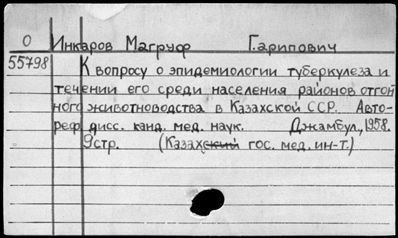 О Инкаров Магруф Гарипович
55798 К вопросу о эпидемиологии туберкулеза и
течении его среди населения районов отгон
ного животноводства в Казахской ССР. Авто-
реф дисс. канд. мед. наук. Джамбул, 1958.
9стр. (Казахский гос. мед. ин-т.)